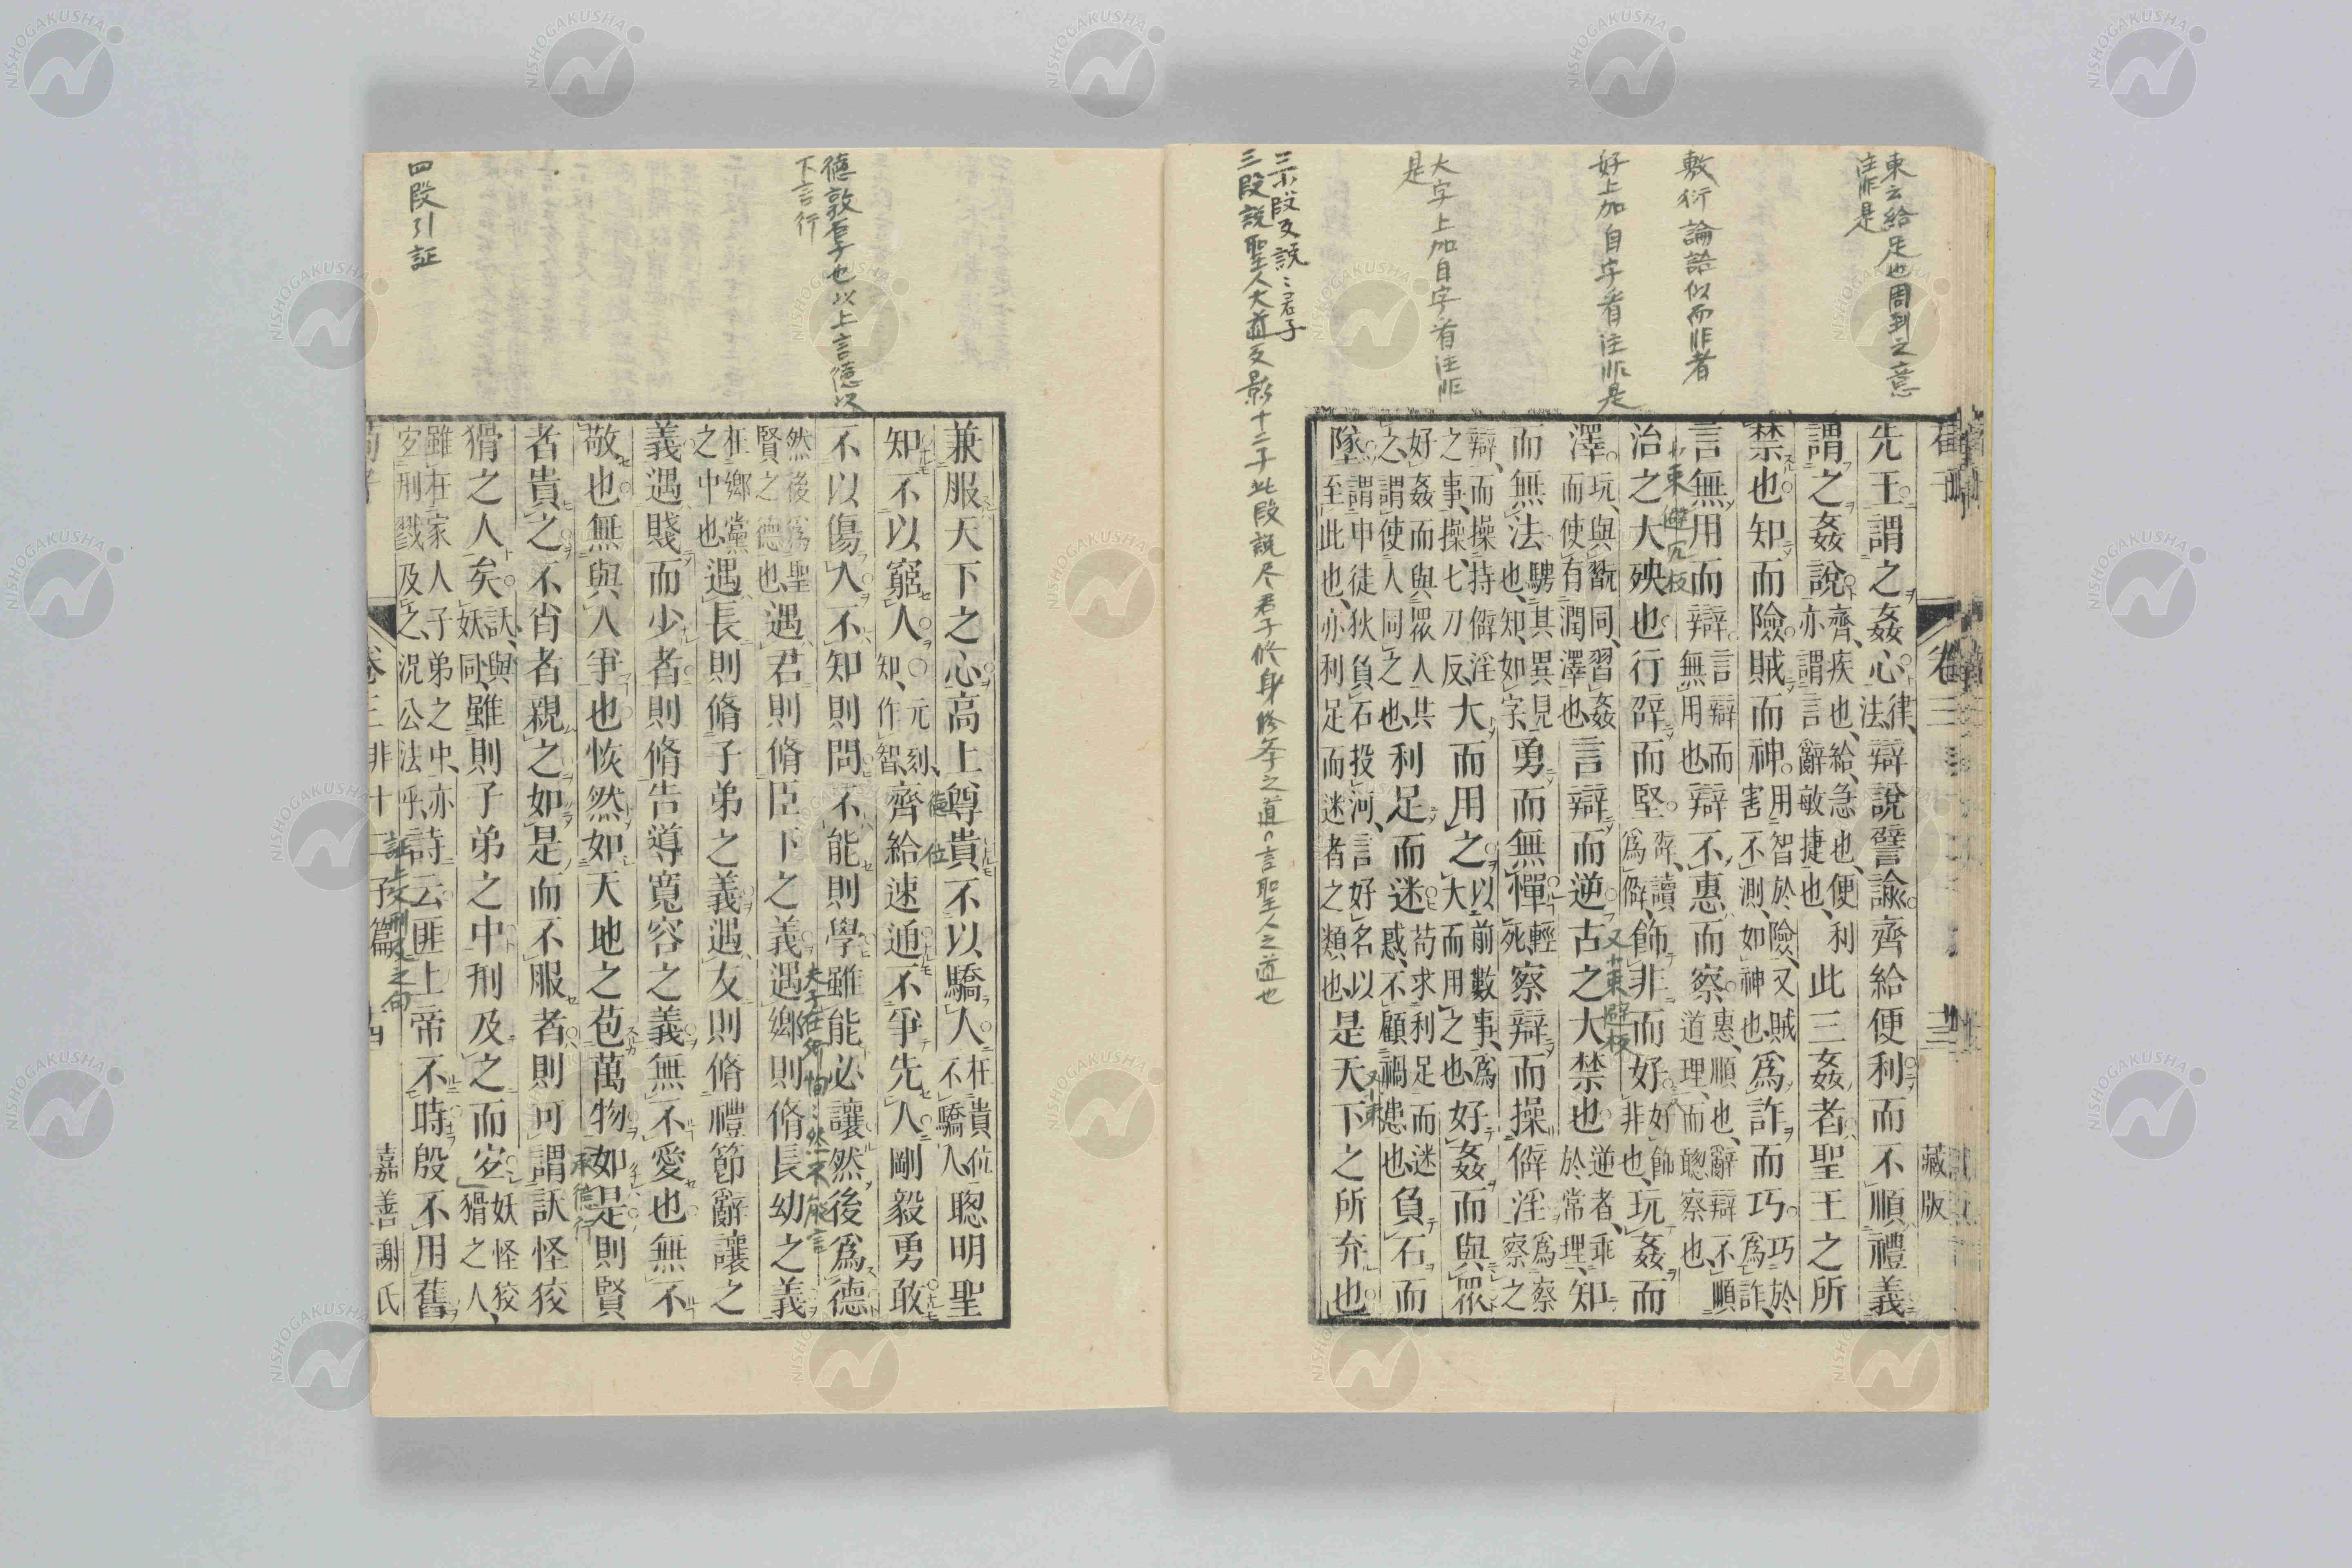 東云給足也周到之意
注非是
敷衍論語似而非者
好上加自字看注非是
大字上加自字看注非
是
三示段反説〻君子
三段説聖人大道反影十二子此段説尽君子修身修斈之道〇言聖人之道也
荀子 卷三 藏版
先王謂之姦心律、法辯說譬諭齊給便利而不順禮義
謂之姦說齊、疾也、給、急也、便利亦謂言辭敏捷也、此三姦者聖王之所
禁也知而險賊而神用智於險、又賊害不測、如神也爲詐而巧巧於爲詐、
言無用而辯言辯而無用也辯不惠而察惠、順也、辭辯不順道理、而聰察也、
治之大殃也行辟而堅辟、讀爲僻、飾非而好好飾非也、玩姦而
澤玩、與翫同、習姦而使有潤澤也言辯而逆古之大禁也逆者、乖於常理、知
而無法騁其異見也、知、如字、勇而無憚輕死、察辯而操僻淫爲察察之
辯、而操持僻淫之事、操、七刀反、大而用之以前數事、爲大而用之也、好姦而與眾
好姦而與眾人共之、謂使人同之也、利足而迷苟求利足而迷惑、不顧禍患也、負石而
墜謂申徒狄負石投河、言好名以至此也、亦利足而迷者之類也、是天下之所弃也
德敦君子也以上言德以
下言行
四段引証
兼服天下之心高上尊貴不以驕人在貴位不驕人、聰明聖
知不以窮人〇元刻、知、作智、齊給速通不爭先人剛毅勇敢
不以傷人不知則問不能則學雖能必讓然後爲德
然後爲聖賢之德也遇君則脩臣下之義遇鄉則脩長幼之義
在鄉黨之中也遇長則脩子弟之義遇友則脩禮節辭讓之
義遇賤而少者則脩告導寬容之義無不愛也無不
敬也無與人爭也恢然如天地之苞萬物如是則賢
者貴之不肖者親之如是而不服者則可謂訞怪狡
猾之人矣訞、與妖同、雖則子弟之中刑及之而宜妖怪狡猾之人、
雖在家人子弟之中、亦宜刑戮及之、況公法乎、詩云匪上帝不時殷不用舊
荀子 卷三 非十二子篇 十四 嘉善謝氏
德
位
承德行
証上文刑及之句
NISHOGAKUSHA